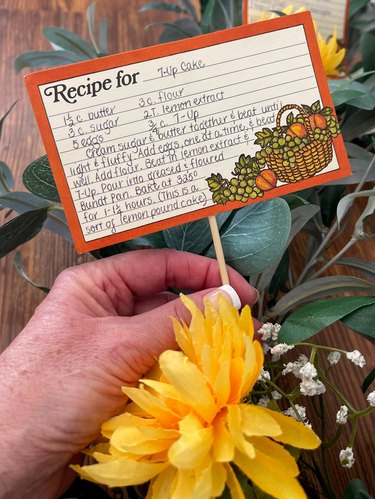 Recipe for 7-Up Cake
1½ c. butter 3 c. flour
3 c. sugar 2 T. lemon extract
5 eggs ¾ c. 7-Up
Cream sugar & butter together & beat until
light & fluffy. Add eggs, one at a time, & beat
well. Add flour. Beat in lemon extract &
7-Up. Pour into greased & floured
Bundt Pan. Bake at 335°
for 1-1¼ hours. (This is a
sort of lemon pound cake)